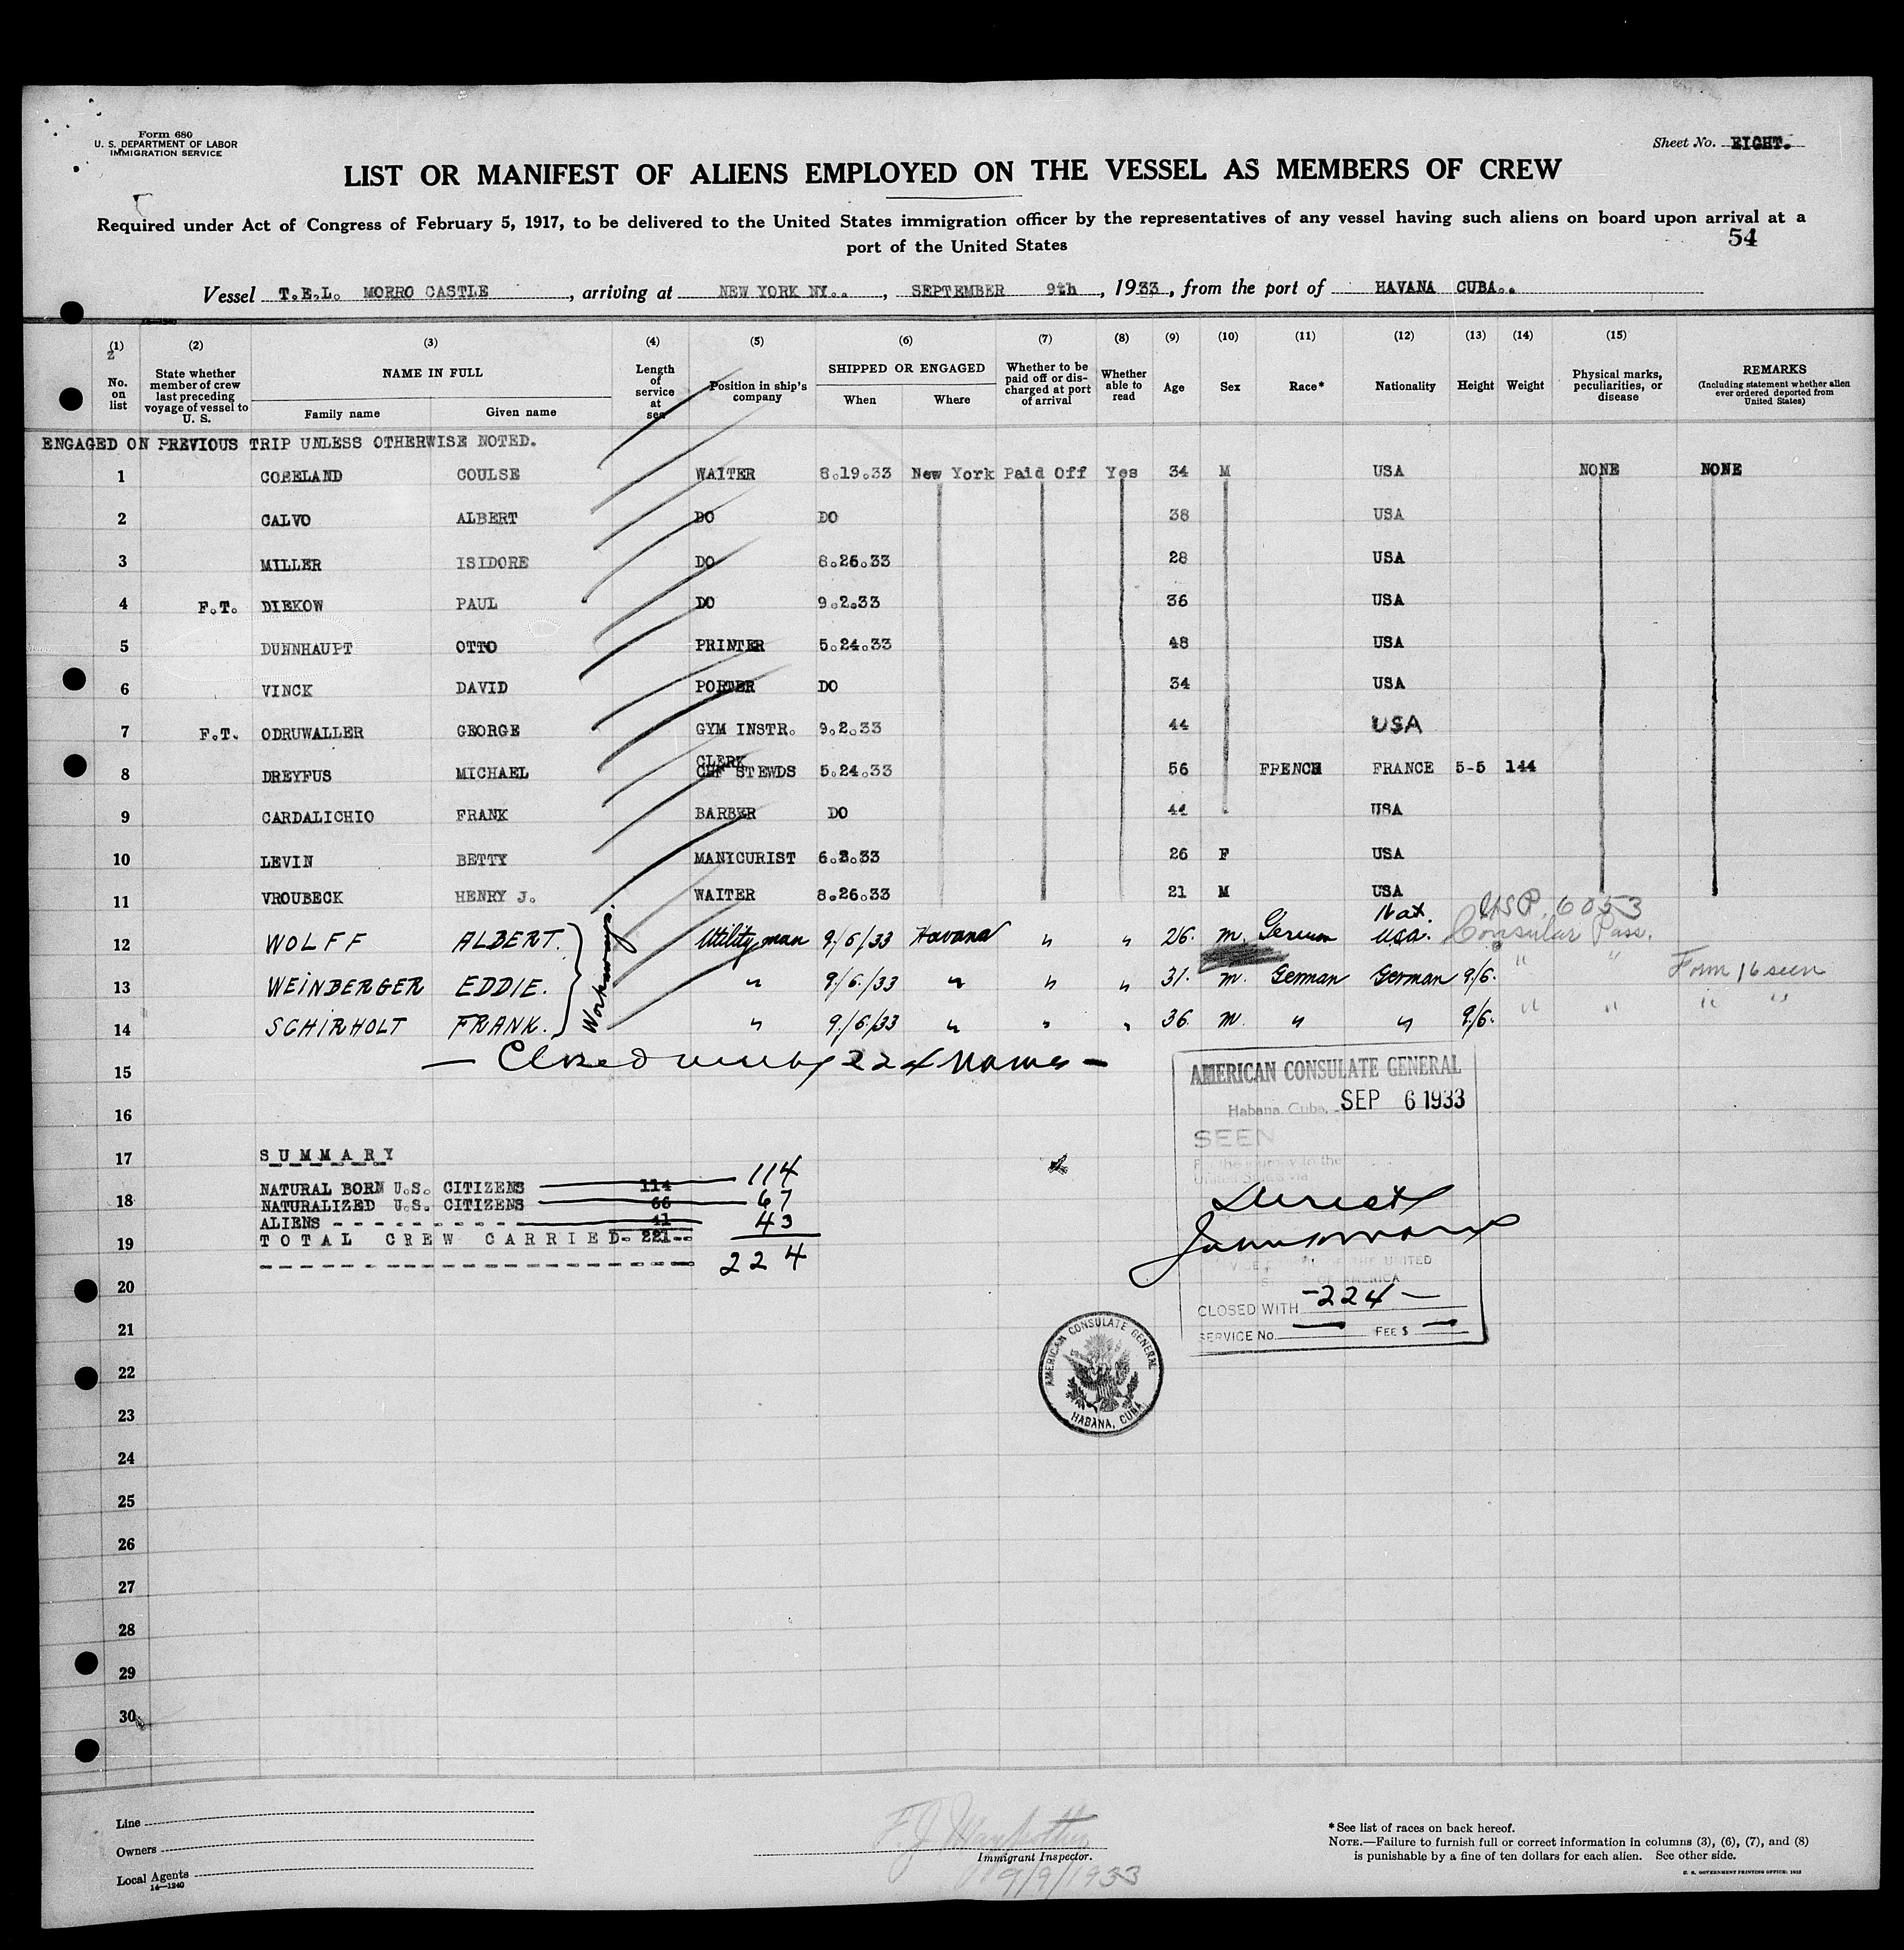 Form 680
U. S. DEPARTMENT OF LABOR
IMMIGRATION SERVICE
Sheet No. EIGHT.
LIST OR MANIFEST OF ALIENS EMPLOYED ON THE VESSEL AS MEMBERS OF CREW
Required under Act of Congress of February 5, 1917, to be delivered to the United States immigration officer by the representatives of any vessel having such aliens on board upon arrival at a
port of the United States
54
Vessel T.E.L. MORRO CASTLE, arriving at NEW YORK NY.., SEPTEMBER 9th, 1933, from the port of HAVANA CUBA..
(1) (2) (3) (4) (5) (6) (7) (8) (9) (10) (11) (12) (13) (14) (15)
No. on list
State whether member of crew last preceding voyage of vessel to U. S.
NAME IN FULL
Family name Given name
Length of service at sea
Position in ship's company
SHIPPED OR ENGAGED
When Where
Whether to be paid off or discharged at port of arrival
Whether able to read
Age
Sex
Race*
Nationality
Height
Weight
Physical marks, peculiarities, or disease
REMARKS
(Including statement whether alien ever ordered deported from United States)
ENGAGED ON PREVIOUS TRIP UNLESS OTHERWISE NOTED.
1 COPELAND COULSE WAITER 8.19.33 New York Paid Off Yes 34 M USA NONE NONE
2 CALVO ALBERT DO DO 38 USA
3 MILLER ISIDORE DO 8.26.33 28 USA
4 F.T. DIEKOW PAUL DO 9.2.33 36 USA
5 DUNNHAUPT OTTO PRINTER 5.24.33 48 USA
6 VINCK DAVID PORTER DO 34 USA
7 F.T. ODRUWALLER GEORGE GYM INSTR. 9.2.33 44 USA
8 DREYFUS MICHAEL CLERK CHF STEWDS 5.24.33 56 FRENCH FRANCE 5-5 144
9 CARDALICHIO FRANK BARBER DO 44 USA
10 LEVIN BETTY MANICURIST 6.3.33 26 F USA
11 VROUBECK HENRY J. WAITER 8.26.33 21 M USA
12 WOLFF ALBERT. Utility man 9/6/33 Havana " " 26. m. German Nat. USA. USP. 6053 Consular Pass.
13 WEINBERGER EDDIE. " 9/6/33 " " " 31. m. German German 9/6. " " Form 16 seen
14 SCHIRHOLT FRANK. " 9/6/33 " " " 36. m. " " 9/6. " " " "
Workaways.
15 — Closed with 224 Names —
16
AMERICAN CONSULATE GENERAL
Habana, Cuba, SEP 6 1933
SEEN
For the journey to the
United States via
Direct
VICE CONSUL OF THE UNITED
STATES OF AMERICA
CLOSED WITH -224-
SERVICE No. — FEE $ —
17 SUMMARY
NATURAL BORN U.S. CITIZENS 114 114
18 NATURALIZED U.S. CITIZENS 66 67
ALIENS - - - - - - - - 41 43
19 TOTAL CREW CARRIED- 221-- 224
20
21
22
23
24
25
26
27
28
29
30
AMERICAN CONSULATE GENERAL
HABANA, CUBA
Line
Owners
Local Agents
14—1240
Immigrant Inspector.
9/9/1933
*See list of races on back hereof.
NOTE.—Failure to furnish full or correct information in columns (3), (6), (7), and (8)
is punishable by a fine of ten dollars for each alien. See other side.